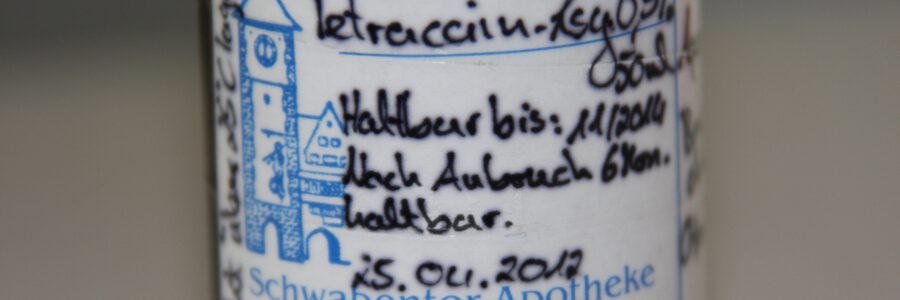 Tetracain-Lsg 0,5%.
50ml
Haltbar bis: 11/2014
Nach Anbruch 6 Mon.
haltbar.
25.04.2012
Schwabentor Apotheke
über 25°C